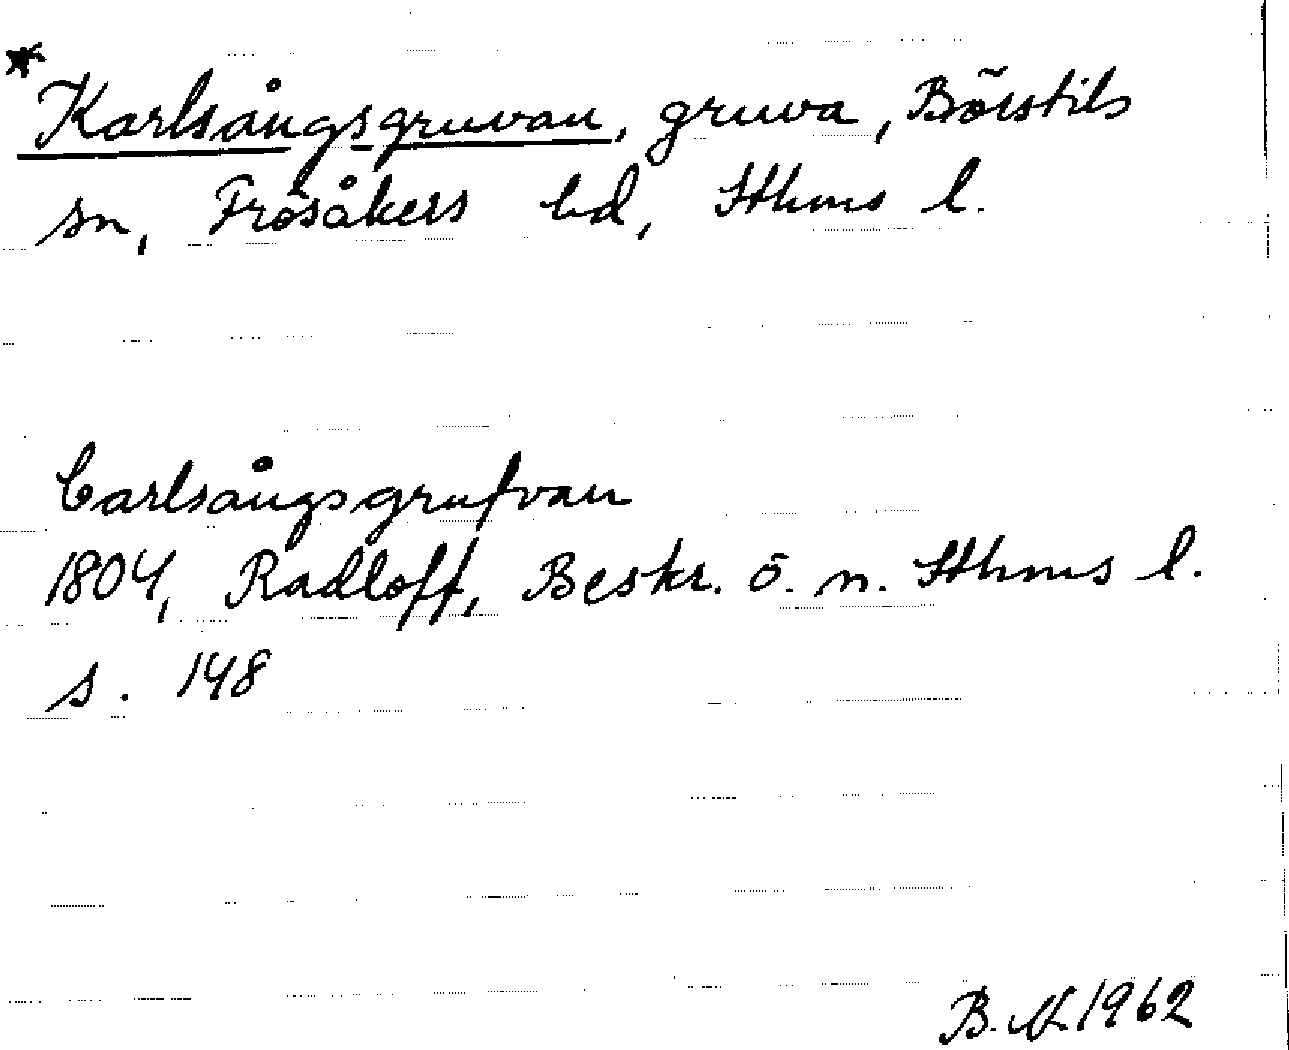 * Karlsängsgruvan, gruva, Börstils
sn, Frösåkers hd, Sthms l.
Carlsängsgrufvan
1804, Radloff, Beskr. ö. n. Sthms l.
s. 148
B. N. 1962